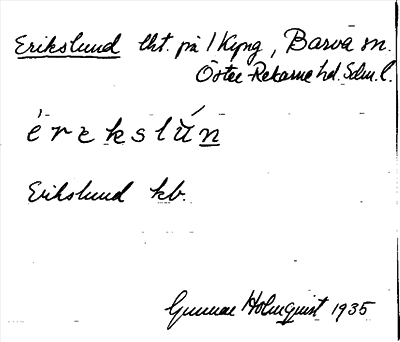 Erikslund lht. på 1 Kpng, Barva sn.
Öster-Rekarne hd. Sdm. l.
érekslún
Erikslund kb.
Gunnar Holmquist 1935